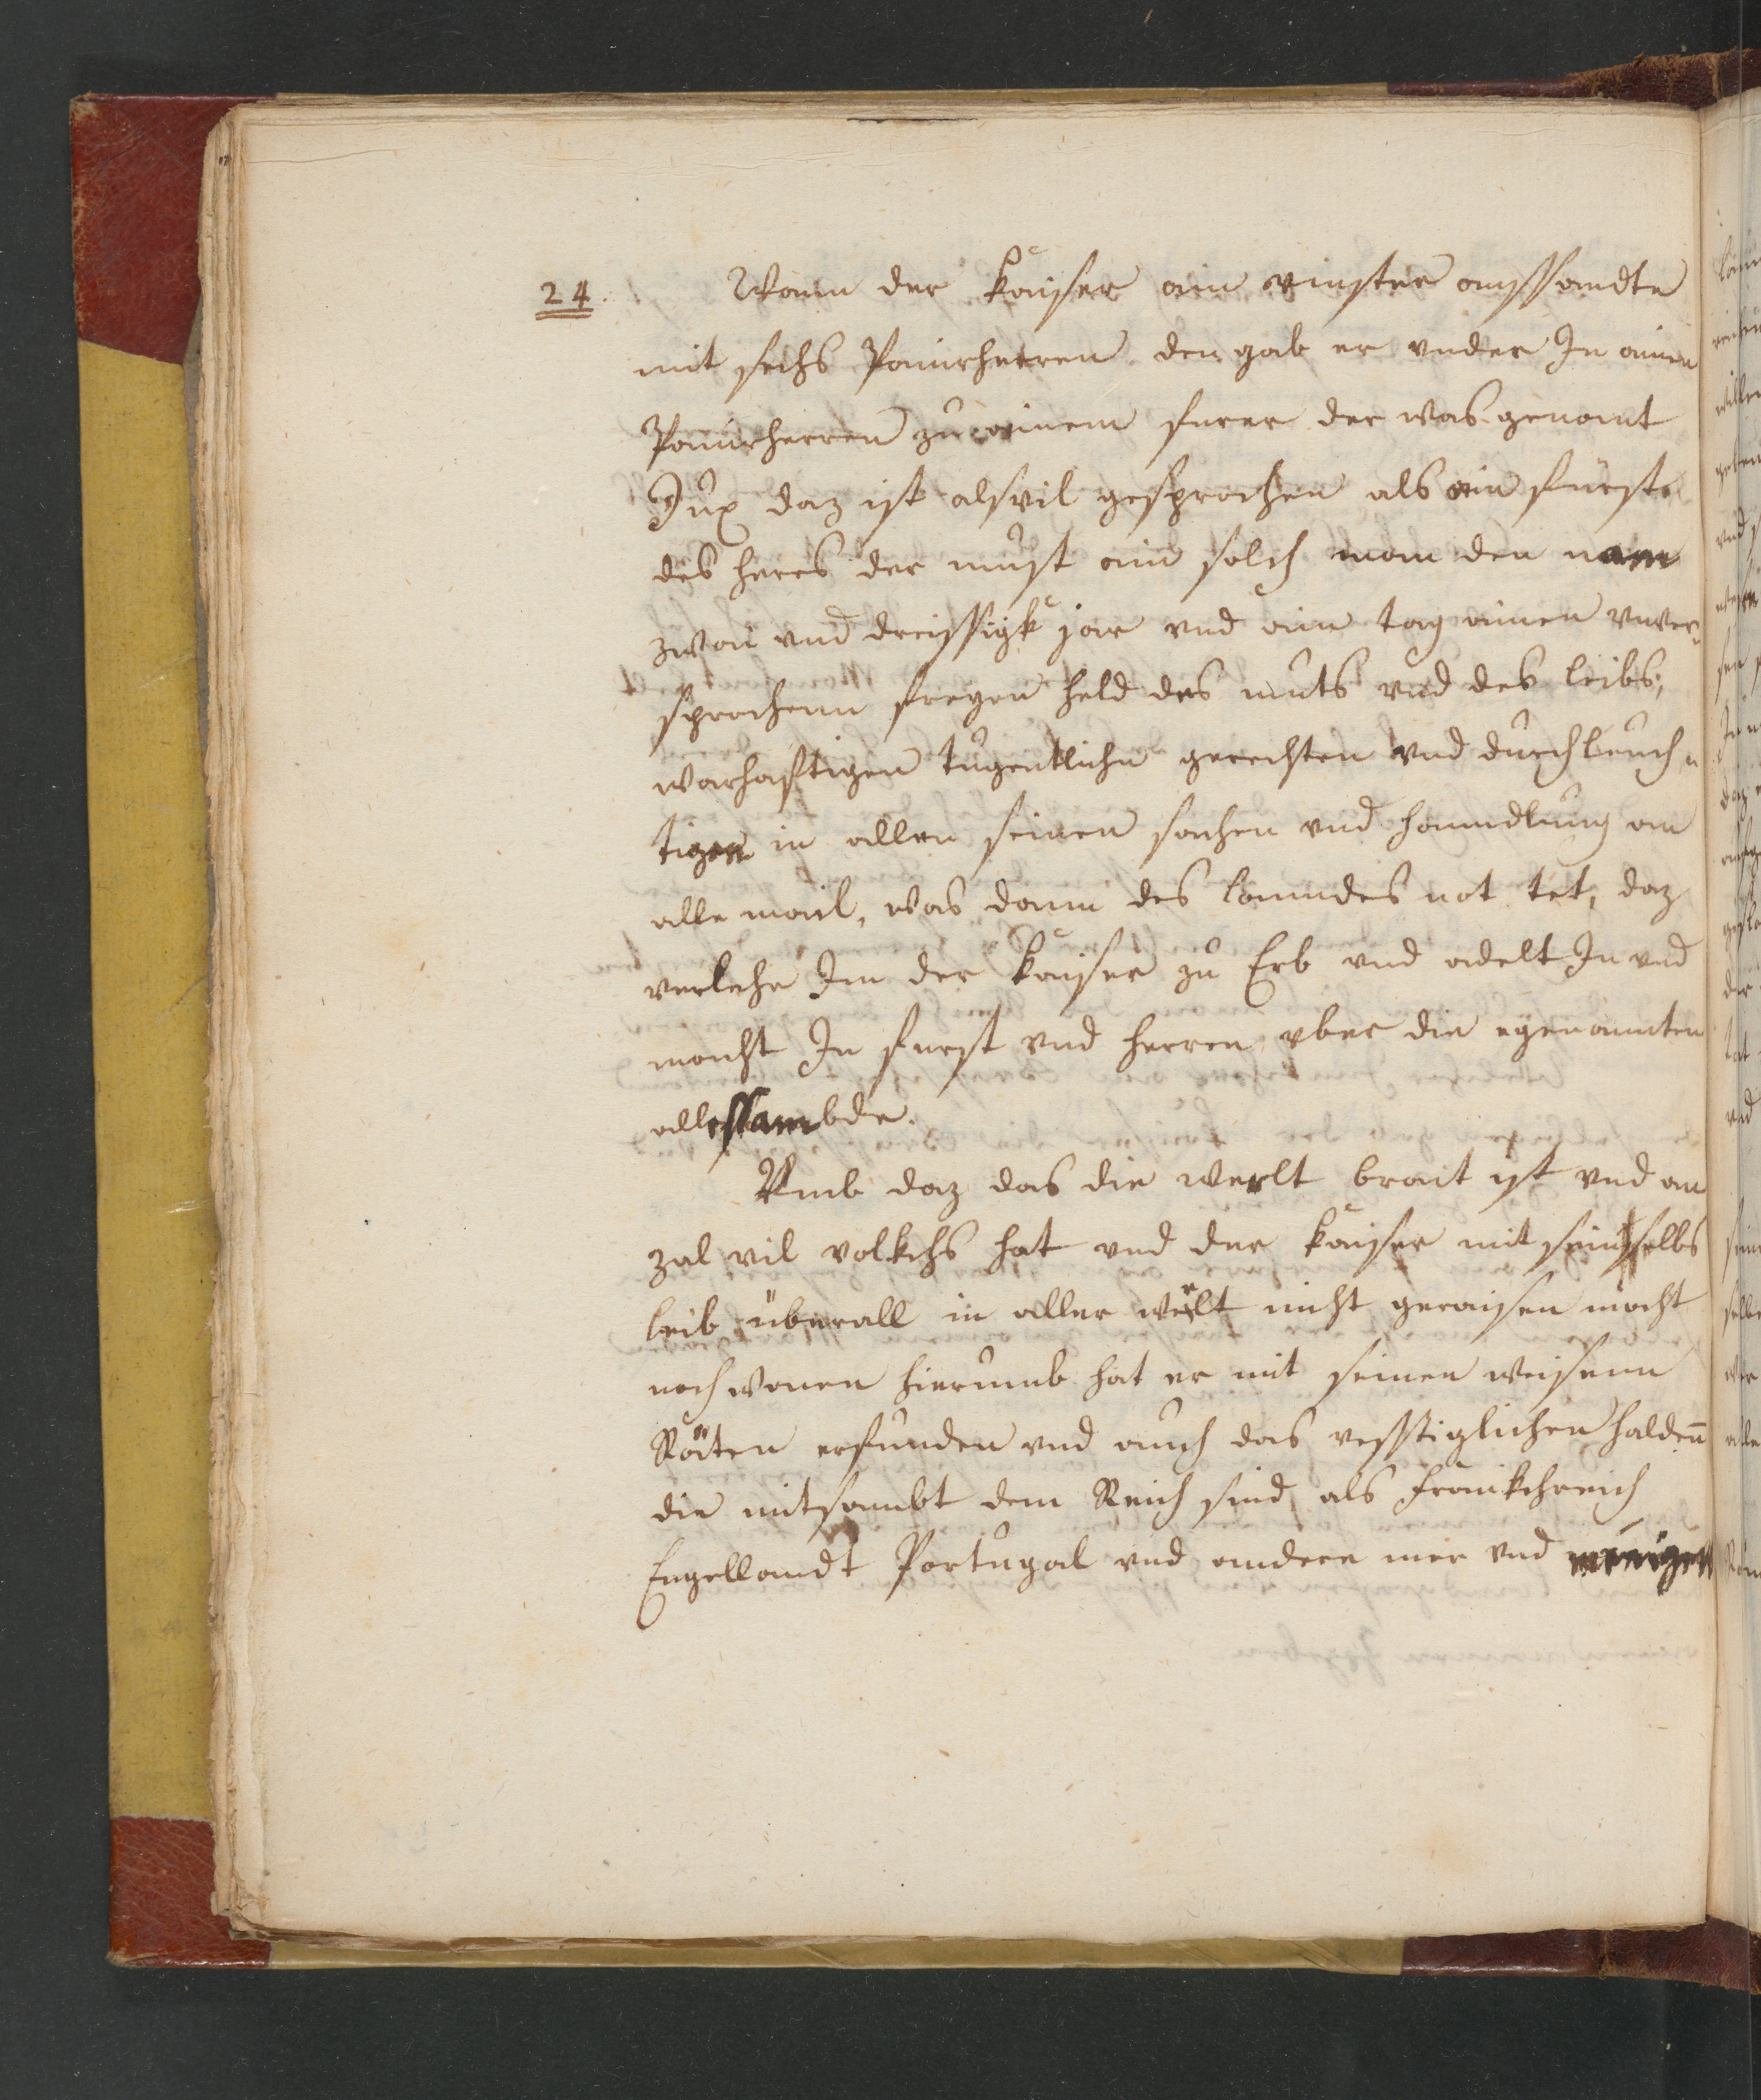 24. Wann der kaiser ain vinster aussandte
mit sechs Panirherren den gab er vnder In ainen
Panirherren zu ainem furer der was genant
Dux daz ist alsvil gesprochen als ain furst
des heres der must ain solch man den nam
zwai vnd dreissigk jar vnd ain tag ainen vnver-
sprochenn freyen held des muts vnd des leibs,
warhafftigen tugentlichn gerechten vnd durchleuch-
tigen in allen seinen sachen vnd hanndlung an
alle mail, was dann des lanndes not tet, daz
verlehe Im der kaiser zu Erb vnd adelt In vnd
macht In furst vnd herren vber die egenannten
allessambde.
Vmb daz das die werlt brait ist vnd an
zal vil volkchs hat vnd der kaiser mit sein selbs
leib überall in aller werlt nicht geraisen mocht
noch wonen hierumb hat er mit seinen weisenn
Räten erfunden vnd auch das vesstiglichen haldenn
die mitsambt dem Reich sind als Frankchreich
Engellandt Portugal vnd andere mer vnd menigen